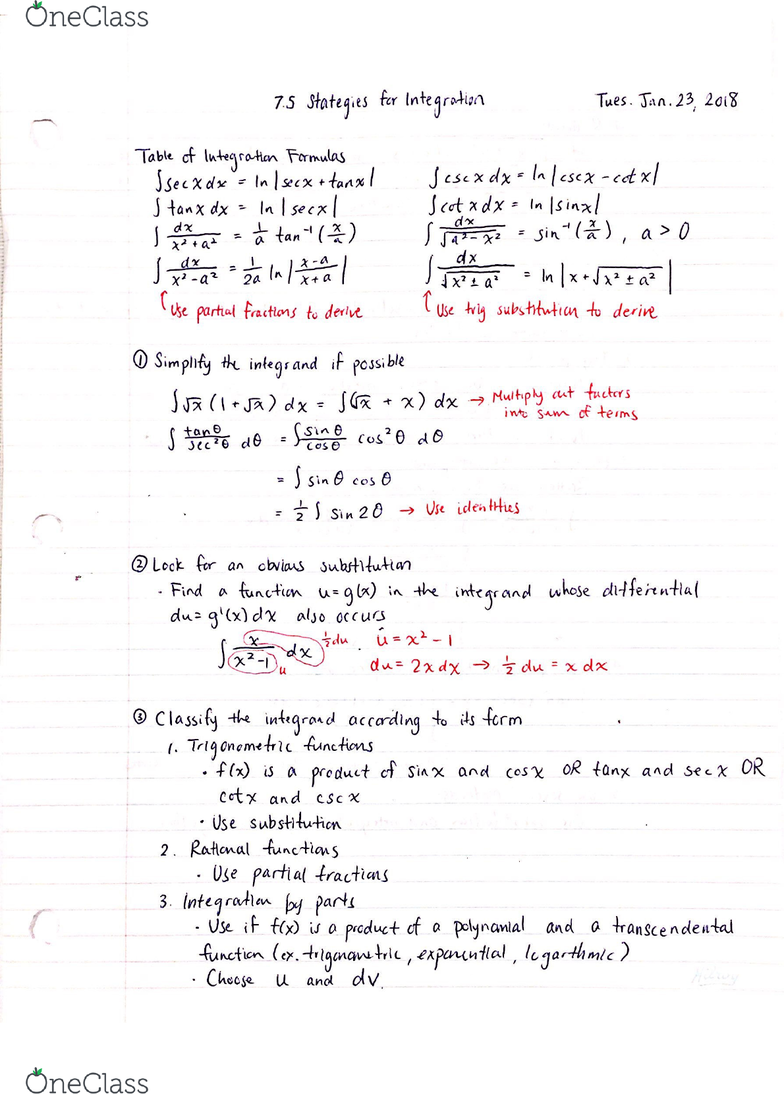 OneClass
7.5 Stategies for Integration Tues. Jan. 23, 2018
Table of Integration Formulas
∫ sec x dx = ln | sec x + tan x | ∫ csc x dx = ln | csc x - cot x |
∫ tan x dx = ln | sec x | ∫ cot x dx = ln | sin x |
∫ dx/(x² + a²) = 1/a tan⁻¹ (x/a) ∫ dx/√(a² - x²) = sin⁻¹ (x/a), a > 0
∫ dx/(x² - a²) = 1/2a ln | (x-a)/(x+a) | ∫ dx/√(x² ± a²) = ln | x + √(x² ± a²) |
↑ Use partial fractions to derive ↑ Use trig substitution to derive
① Simplify the integrand if possible
∫ √x (1 + √x) dx = ∫ (√x + x) dx → Multiply out factors
into sum of terms
∫ tanθ/sec²θ dθ = ∫ sinθ/cosθ cos²θ dθ
= ∫ sin θ cos θ
= 1/2 ∫ sin 2θ → Use identities
② Look for an obvious substitution
· Find a function u = g(x) in the integrand whose differential
du = g'(x) dx also occurs
∫ x/(x² - 1) dx 1/2 du u u = x² - 1
du = 2x dx → 1/2 du = x dx
③ Classify the integrand according to its form
1. Trigonometric functions
· f(x) is a product of sin x and cos x OR tan x and sec x OR
cot x and csc x
· Use substitution
2. Rational functions
· Use partial fractions
3. Integration by parts
· Use if f(x) is a product of a polynomial and a transcendental
function (ex. trigonometric, exponential, logarthmic)
· Choose u and dv.
OneClass